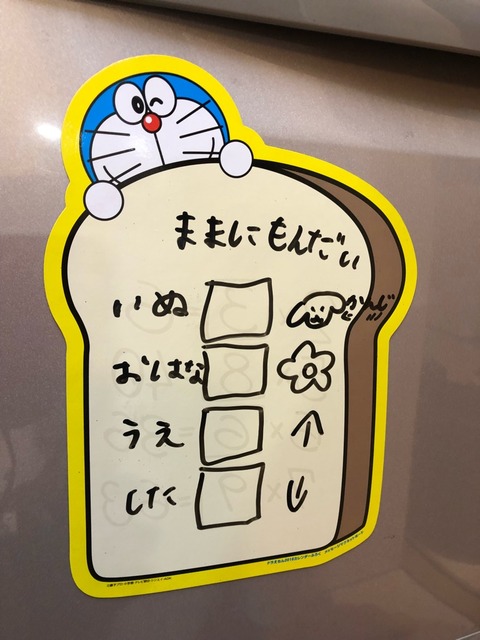 ままにもんだい
いぬ かんじ
おはな
うえ
した